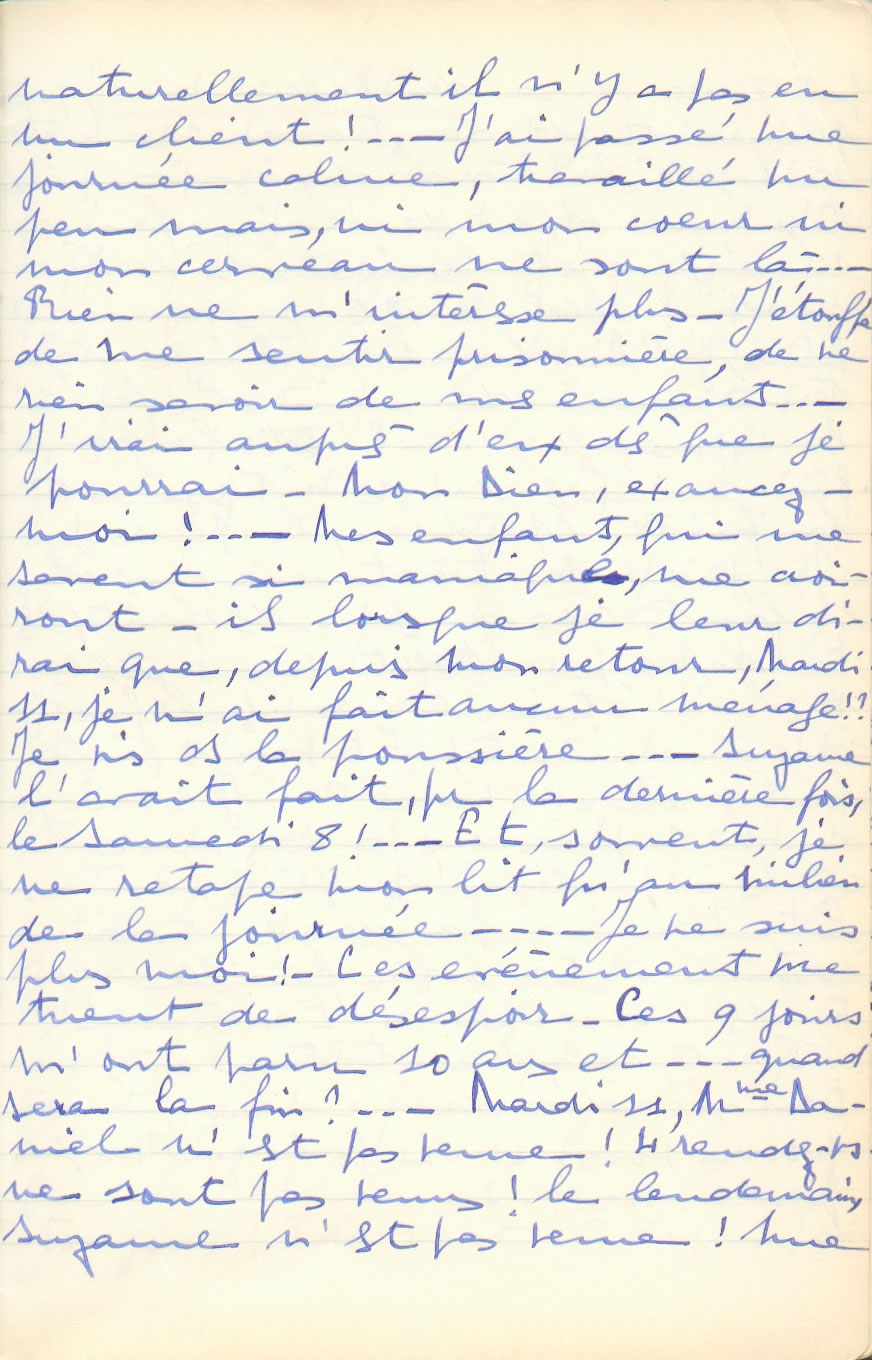 naturellement il n'y a pas eu
un client ! --- J'ai passé une
journée calme, travaillé un
peu mais, ni mon coeur ni
mon cerveau ne sont là ---
Rien ne m'intéresse plus - J'étouffe
de me sentir prisonnière, de ne
rien savoir de mes enfants ---
J'irai auprès d'eux dès que je
pourrai - Mon Dieu, exaucez-
moi ! --- Mes enfants, qui me
savent si maniaque, me croi-
ront - ils lorsque je leur di-
rai que, depuis mon retour, Mardi
11, je n'ai fait aucun ménage !!
Je vis ds la poussière --- Suzanne
l'avait fait, pr la dernière fois,
le Samedi 8 ! --- Et, souvent, je
ne retape mon lit qu'au milieu
de la journée ---- Je ne suis
plus moi ! - Ces événements me
tuent de désespoir - Ces 9 jours
m'ont paru 10 ans et --- quand
sera la fin ? --- Mardi 11, Mme Da-
niel n'est pas venue ! 4 rendez-vs
ne sont pas venus ! le lendemain,
Suzanne n'est pas venue ! Une